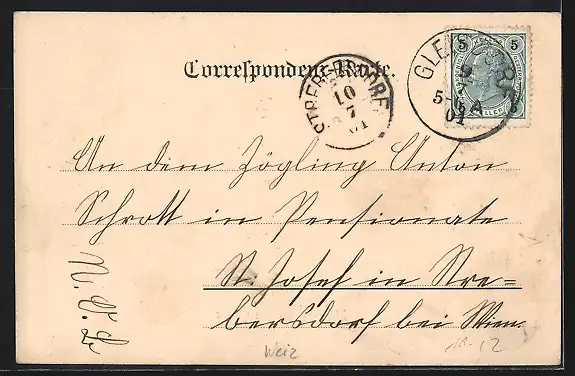 Correspondenz-Karte.
5 5
GLEISDORF
5
01
STREBERSDORF
10
7
01
An dem Zögling Anton
Schrott in Pensionate
St. Josef in Stre-
bersdorf bei Wien.
N. Ö. L.
Weiz